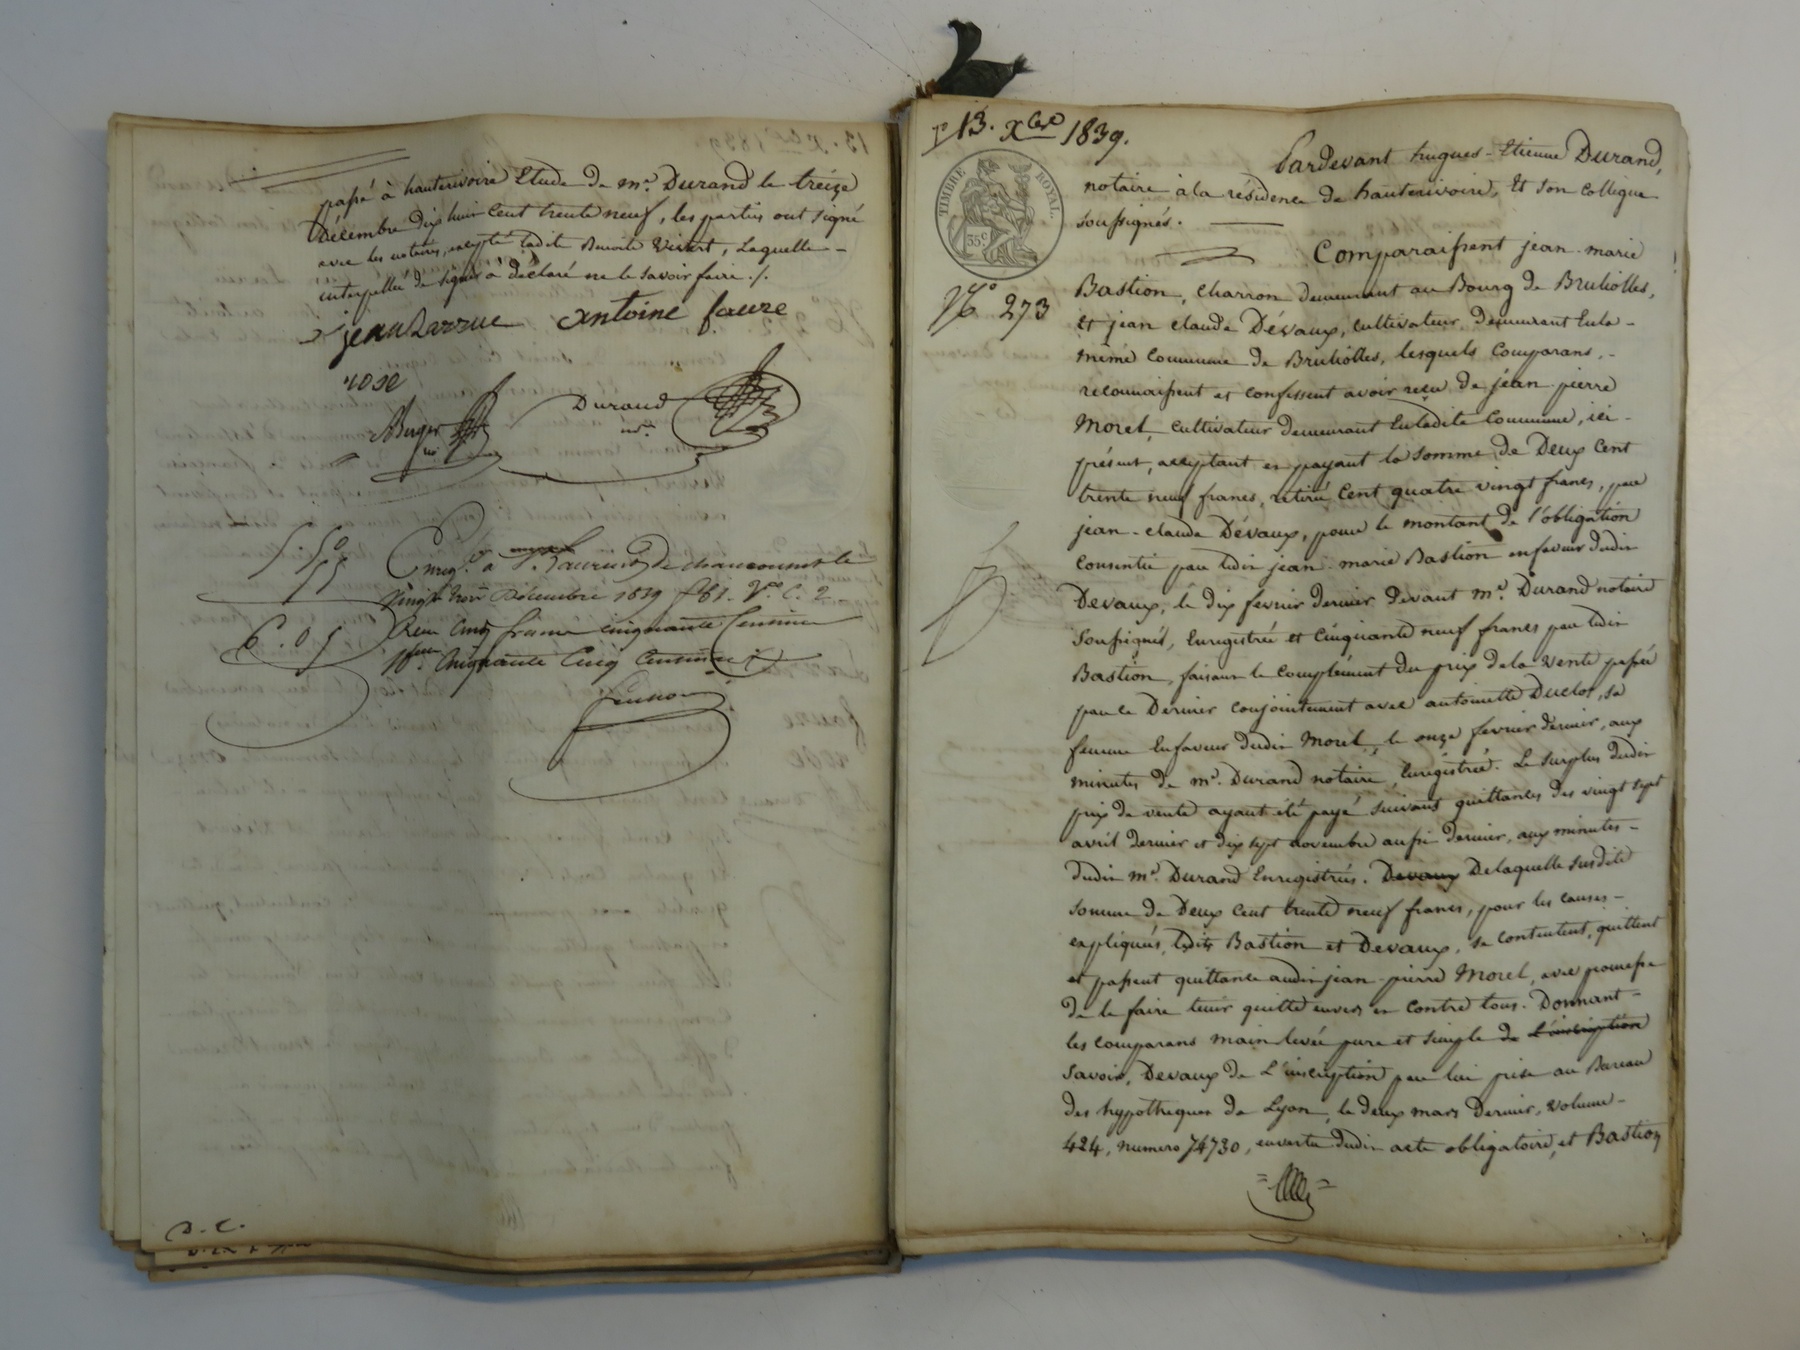 passé à hauterivoire Etude de me. Durand le treize
Décembre dix huit cent trente neuf, les parties ont signé
avec les notaires, excepté ladite Benoite Vivert, Laquelle -
interpellée de signer a déclaré ne le savoir faire ./.
jean Larrue antoine faure
rose
Berger Durand
nre
5.50
55
6.05
Enregé. à St. Laurent de chamousset le
vingt trois Décembre 1839 fo 61. Vo. C. 2
Reçu Cinq francs cinquante Centimes
10eme. Cinquante Cinq Centimes
D. C.
13. Xbre 1839.
TIMBRE ROYAL.
35c
No 273
Pardevant hugues-Etienne Durand,
notaire à la résidence de hauterivoire, Et son collègue
soussignés.
Comparaissent jean-marie
Bastion, charron demeurant au Bourg de Brulliolles,
et jean claude Dévaux, cultivateur demeurant En la -
même commune de Brulliolles, lesquels comparans, -
reconnaissent et confessent avoir reçu de jean-pierre
Morel, cultivateur demeurant En ladite commune, ici -
présent, acceptant et payant la somme de Deux Cent
trente neuf francs, retirée Cent quatre vingt francs, par
jean-claude Dévaux, pour le montant de l'obligation
consentie par ledit jean-marie Bastion en faveur dudit
Devaux, le dix fevrier dernier devant me. Durand notaire
soussignés, Enregistrée et cinquante neuf francs par ledit
Bastion, faisant le complément du prix de la vente passée
par ce Dernier conjointement avec antoinette Duclos, sa
femme En faveur dudit Morel, le onze fevrier dernier, aux
minutes de me. Durand notaire, Enregistrée. Le surplus dudit
prix de vente ayant été payé suivant quittances des vingt sept
avril dernier et dix sept novembre aussi dernier, aux minutes -
dudit me. Durand Enregistrées. Devaux De laquelle susdite
somme de Deux Cent trente neuf francs, pour les causes -
expliquées, lédits Bastion et Devaux, se contentent, quittent
et passent quittance audit jean-pierre Morel, avec promesse
de le faire tenir quitte envers et contre tous. Donnant -
les comparans main levée pure et simple de L'inscription
savoir, Devaux de L'inscription par lui prise au Bureau
des hypotheques de Lyon, le deux mars dernier, volume -
424, numero 74730, en vertu dudit acte obligatoire, et Bastion